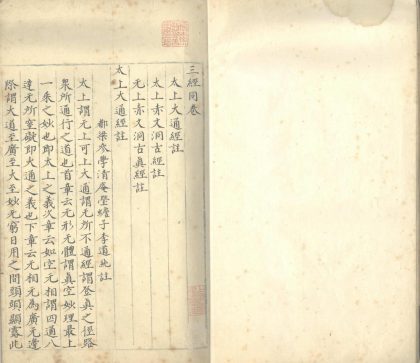 三經同卷
太上大通經註
太上赤文洞古真經註
无上赤文洞古真經註
太上大通經註
都梁參學清庵瑩蟾子李道純註
太上謂无上可上大通謂无所不通經謂登真之徑路
衆所通行之道也首章云无形无體謂真空妙理最上
一乘之妙也即太上之義次章云如空无相謂四通八
達无所窒礙即大通之義也下章云无相无為廣无邊
際謂大道至廣至大至妙无窮日用之間頭頭顯露此